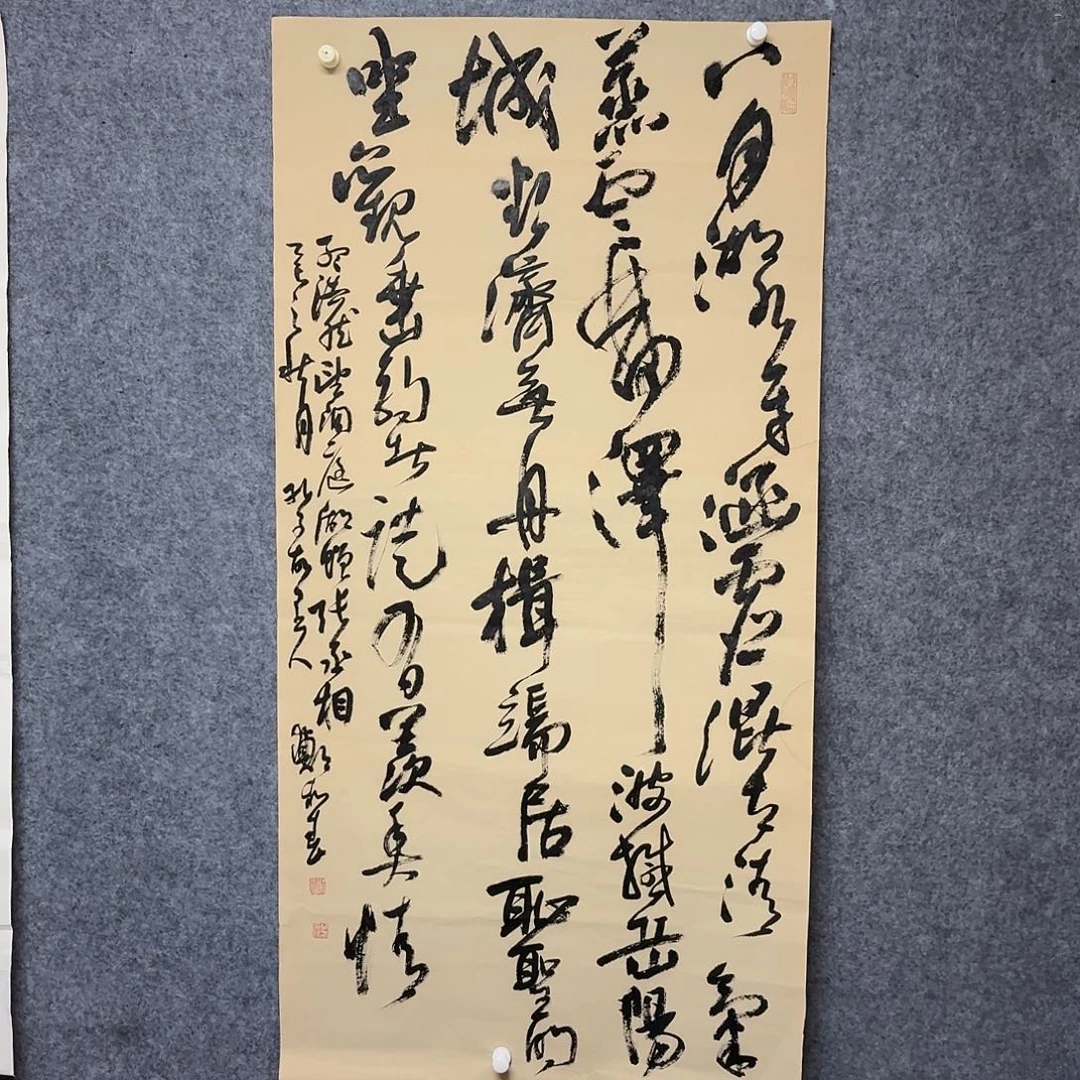 八月湖水平涵虛混太清氣
蒸雲夢澤波撼岳陽
城欲濟無舟楫端居恥聖明
坐觀垂釣者徒有羨魚情
孟浩然望洞庭湖贈張丞相
之秋月 人 鄭